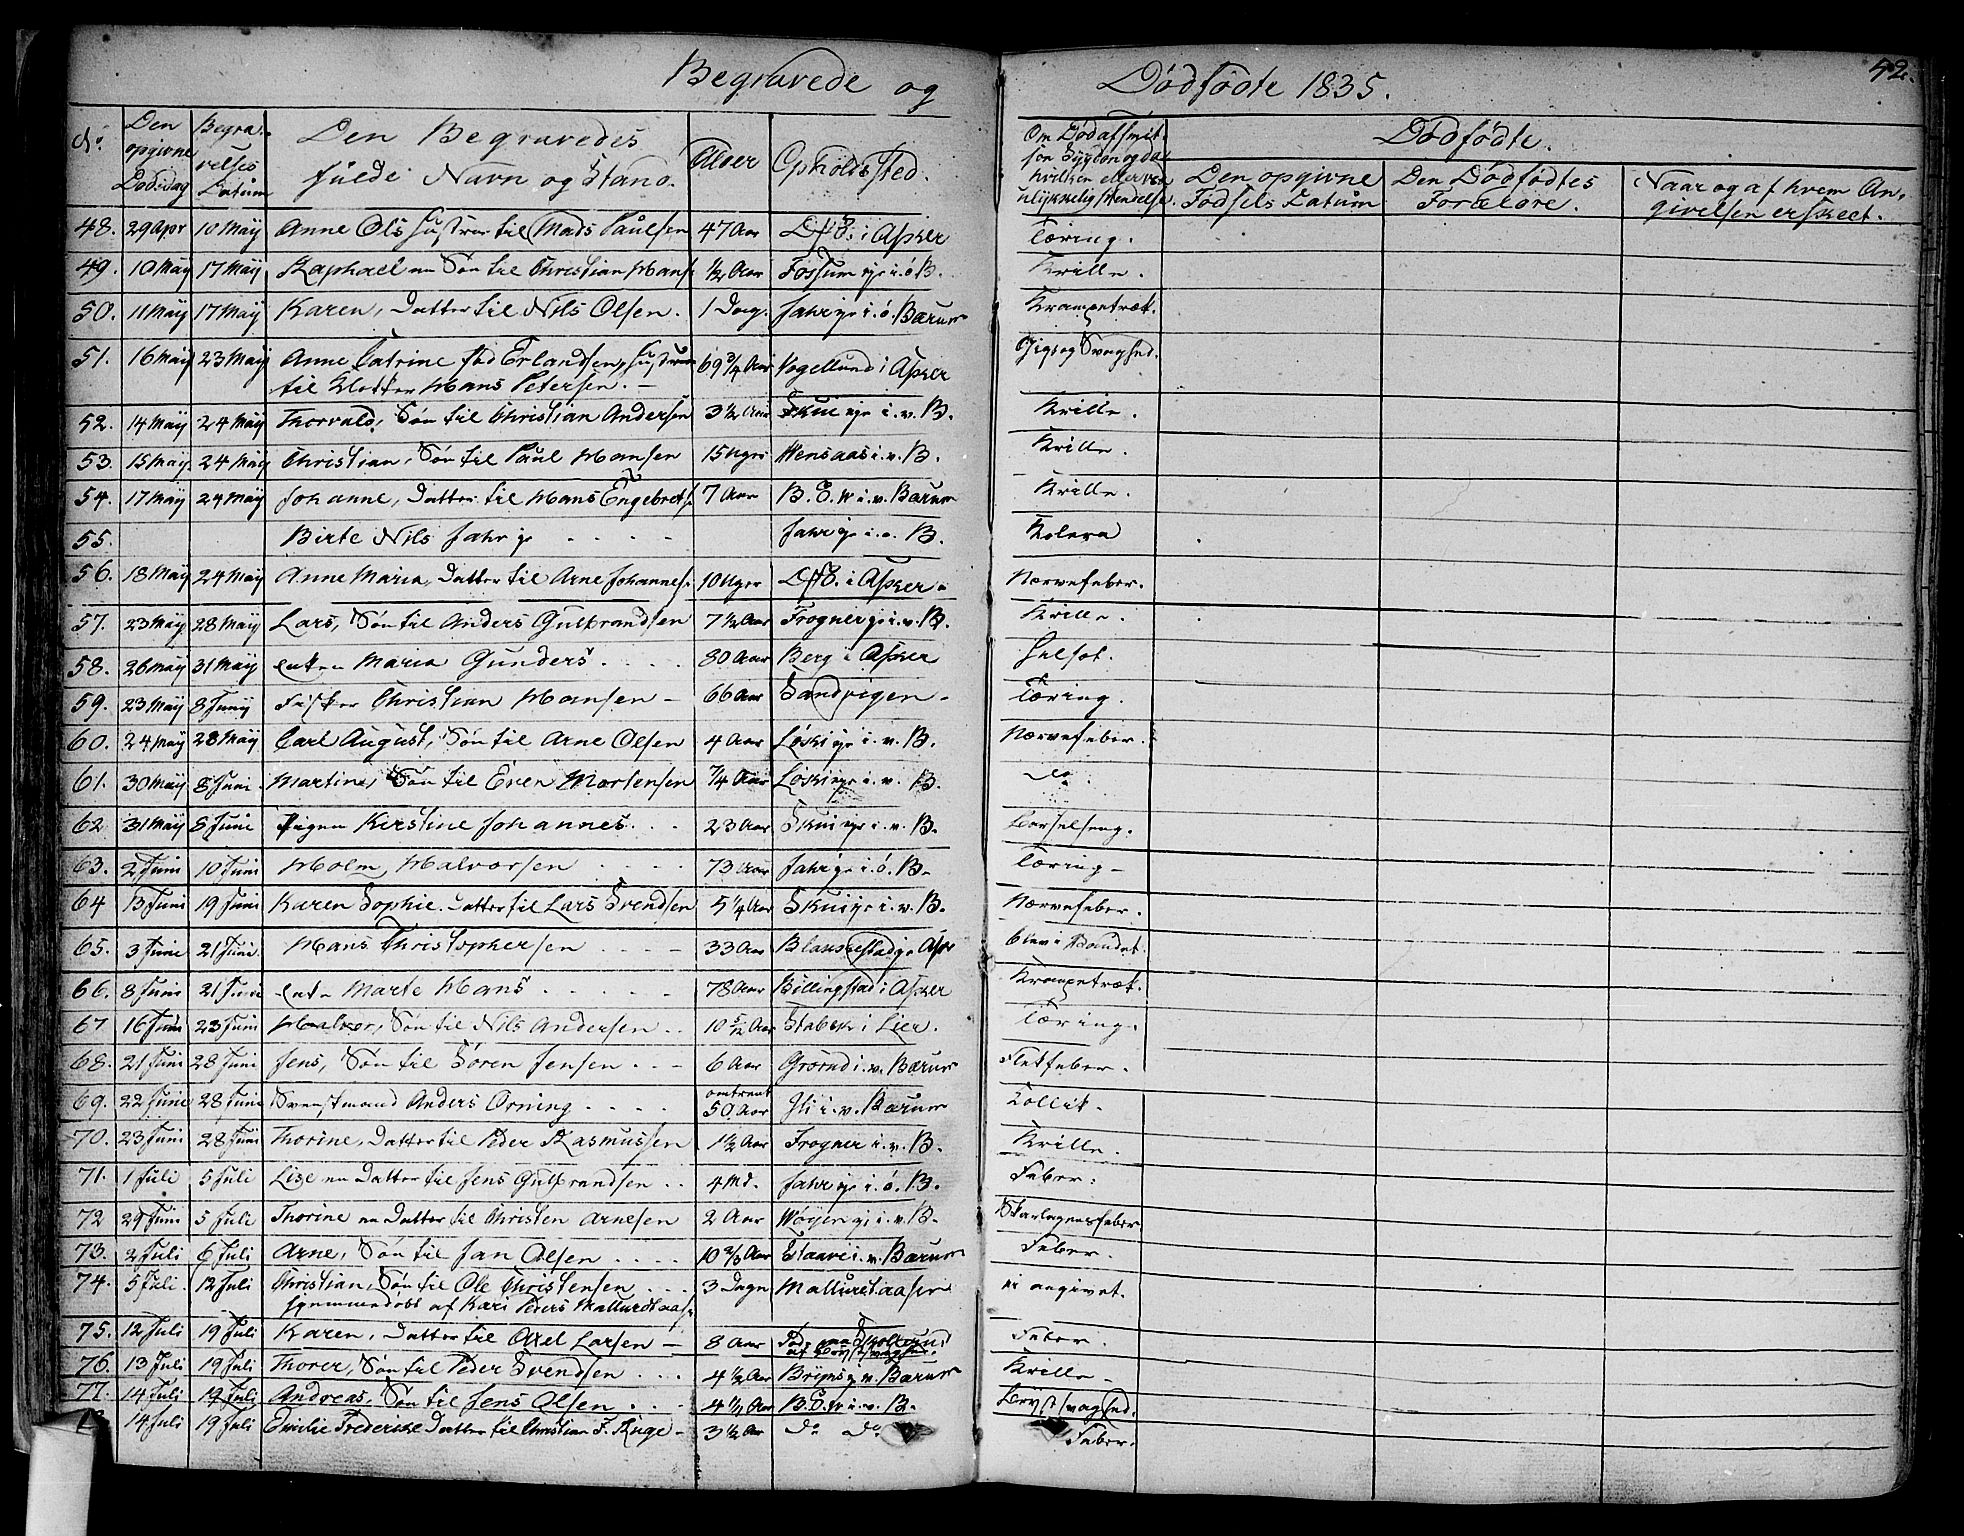 Begravede og Dødfødte 1835.
42.
No.
Den opgivne Dødsdag
Begravelses Datum
Den Begravedes fulde Navn og Stand.
Alder
Opholds Sted.
Dødfødte.
Den opgivne Fødsels Datum
Den Dødfødtes Forældre.
Naar og af hvem Angivelsen er skeet.
48. 29 Apr 10 May Anne Ols Hustrue til Mads Paulsen 47 Aar i Asker Tæring.
49. 10 May 17 May Raphael en Søn til Christian Hans 1/2 Aar Fossum eje i. ø. B. Krille.
50. 11 May 17 May Karen, Datter til Nils Olsen. 1 Dag. Jahr eje i. ø. Bærum Krampetræk.
51. 16 May 23 May Anne Catrine fød Erlandsen, Hustrue 69 3/4 Aar Vogellund i Asker Gigt og Svaghed.
til Klokker Hans Petersen. –
52. 14 May 24 May Thorvald, Søn til Christian Andersen 3 1/2 Aar Skui eje i. v. B. Krille.
53. 15 May 24 May Christian, Søn til Paul Hansen 15 Uger Hensaas i. v. B. Krille.
54. 17 May 24 May Johanne, Datter til Hans Engebrets 7 Aar B. E. W i. v. Bærum Krille.
55. Birte Nils Jahr eje Jahr eje i. ø. B. Kolera
56. 18 May 24 May Anne Maria, Datter til Arne Johannes 10 Uger i Asker Nervefeber.
57. 23 May 28 May Lars, Søn til Anders Gulbrandsen 7 1/2 Aar Frogner eje i. v. B. Krille.
58. 26 May 31 May Enken Maria Gunders 80 Aar Berg i Asker
59. 23 May 8 Juny Fisker Christian Hansen – 66 Aar Sandvigen – Tæring.
60. 24 May 28 May Carl August, Søn til Arne Olsen 4 Aar Løski eje i. v. B. Nervefeber.
61. 30 May 8 Juni Martin, Søn til Even Mortensen 7/4 Aar Løski eje i. v. B. do.
62 31 May 8 Juni Pigen Kirstine Johannes. 23 Aar Skui eje i. v. B. Barselseng.
63. 2 Juni 10 Juni Holm Halvorsen 73 Aar Jahr eje i. ø. B. Tæring –
64 13 Juni 19 Juni Karen Sophie. Datter til Lars Svendsen 5 1/4 Aar Skui eje i. v. B. Nervefeber.
65. 3 Juni 21 Juni Hans Christophersen 33 Aar Blakkestad eje Asker blev i Vandet.
66. 8 Juni 21 Juni Enken Marte Hans 78 Aar Billingstad i Asker Krampetræk.
67 16 Juni 23 Juni Halvor, Søn til Nils Andersen 10 5/12 Aar Stabek i Lier. Tæring.
68. 21 Juni 28 Juni Jens, Søn til Søren Jensen 6 Aar Grørud i. v. Bærum Flekfeber.
69. 22 Juni 28 Juni Svenstmand Anders Örning omtrent 50 Aar Gli i. v. Bærum Kollik.
70. 23 Juni 28 Juni Thorine, Datter til Peder Rasmussen 1 1/2 Aar Frogner i. v. B. Krille.
71. 1 Juli 5 Juli Lise en Datter til Jens Gulbrandsen 4 Md. Jahr eje i. ø. B. Feber.
72 29 Juni 5 Juli Thorine en Datter til Christen Arnesen 2 Aar Wøyen eje i. v. B. Skarlagensfeber
73. 2 Juli 6 Juli Arne, Søn til Jan Olsen 10 2/3 Aar Staave i. v. Bærum Feber.
74. 5 Juli 12 Juli Christian, Søn til Ole Christensen 3 Dage Mallurstaasen ei angivet.
hjemmedøbt af Kari Peders Mallurdstaas
75. 12 Juli 19 Juli Karen, Datter til Axel Larsen – 8 Aar Feber.
76. 13 Juli 19 Juli Thorer, Søn til Peder Svendsen 4 1/2 Aar v. Bærum Krille –
77. 14 Juli 19 Juli Andreas, Søn til Jens Olsen B. E. W i. v. B. Brystsvaghed.
14 Juli 19 Juli Emilie Frederikke Datter til Christian F. Ruge – 3 1/2 Aar do do Feber.